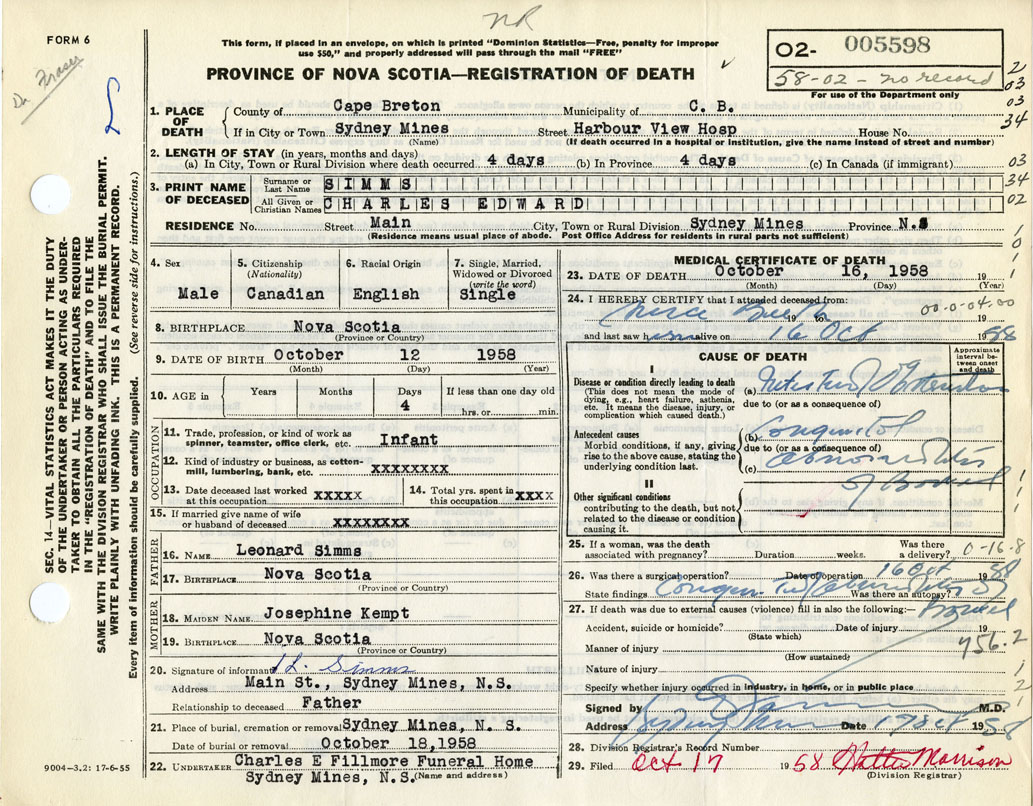 NR
FORM 6
Dr. Fraser
This form, if placed in an envelope, on which is printed "Dominion Statistics—Free, penalty for improper
use $50," and properly addressed will pass through the mail "FREE"
PROVINCE OF NOVA SCOTIA—REGISTRATION OF DEATH
O2- 005598
58-02 - no record
For use of the Department only
2
03
03
34
1. PLACE OF DEATH County of Cape Breton Municipality of C. B.
If in City or Town Sydney Mines Street Harbour View Hosp House No.
(Name) (If death occurred in a hospital or institution, give the name instead of street and number)
2. LENGTH OF STAY (in years, months and days)
(a) In City, Town or Rural Division where death occurred 4 days (b) In Province 4 days (c) In Canada (if immigrant)
03
34
02
3. PRINT NAME OF DECEASED
Surname or Last Name SIMMS
All Given or Christian Names CHARLES EDWARD
RESIDENCE No. Street Main City, Town or Rural Division Sydney Mines Province N.S
(Residence means usual place of abode. Post Office Address for residents in rural parts not sufficient)
4. Sex Male
5. Citizenship (Nationality) Canadian
6. Racial Origin English
7. Single, Married, Widowed or Divorced (write the word) Single
8. BIRTHPLACE Nova Scotia
(Province or Country)
9. DATE OF BIRTH October 12 1958
(Month) (Day) (Year)
10. AGE in Years Months Days 4 If less than one day old hrs. or min.
OCCUPATION
11. Trade, profession, or kind of work as spinner, teamster, office clerk, etc. Infant
12. Kind of industry or business, as cotton-mill, lumbering, bank, etc. xxxxxxxx
13. Date deceased last worked at this occupation xxxxx
14. Total yrs. spent in this occupation xxxx
15. If married give name of wife or husband of deceased xxxxxxxx
FATHER
16. NAME Leonard Simms
17. BIRTHPLACE Nova Scotia
(Province or Country)
MOTHER
18. MAIDEN NAME Josephine Kempt
19. BIRTHPLACE Nova Scotia
(Province or Country)
20. Signature of informant L. Simms
Address Main St., Sydney Mines, N.S.
Relationship to deceased Father
21. Place of burial, cremation or removal Sydney Mines, N. S.
Date of burial or removal October 18,1958
22. UNDERTAKER Charles E Fillmore Funeral Home
Sydney Mines, N.S. (Name and address)
MEDICAL CERTIFICATE OF DEATH
23. DATE OF DEATH October 16, 1958 19
(Month) (Day) (Year)
24. I HEREBY CERTIFY that I attended deceased from:
00-0-04-00
since Birth 19 to 19
and last saw him alive on 16 Oct 1958
CAUSE OF DEATH
Approximate interval between onset and death
I
Disease or condition directly leading to death
(This does not mean the mode of dying, e.g., heart failure, asthenia, etc. It means the disease, injury, or complication which caused death.)
(a)
due to (or as a consequence of)
Antecedent causes
Morbid conditions, if any, giving rise to the above cause, stating the underlying condition last.
(b) Congenital
due to (or as a consequence of)
(c)
of Bowel
II
Other significant conditions
contributing to the death, but not related to the disease or condition causing it.
25. If a woman, was the death associated with pregnancy? Duration weeks. Was there a delivery? 0-16-8
26. Was there a surgical operation? Date of operation 16 Oct 1958
State findings Was there an autopsy?
Bowel
27. If death was due to external causes (violence) fill in also the following:—
Accident, suicide or homicide? Date of injury 19
(State which)
Manner of injury 756.2
(How sustained)
Nature of injury
Specify whether injury occurred in industry, in home, or in public place
Signed by M.D.
Address Sydney Mines Date 17 Oct 1958
28. Division Registrar's Record Number
29. Filed Oct 17 1958 Hattie Morrison
(Division Registrar)
SEC. 14—VITAL STATISTICS ACT MAKES IT THE DUTY
OF THE UNDERTAKER OR PERSON ACTING AS UNDER-
TAKER TO OBTAIN ALL THE PARTICULARS REQUIRED
IN THE "REGISTRATION OF DEATH" AND TO FILE THE
SAME WITH THE DIVISION REGISTRAR WHO SHALL ISSUE THE BURIAL PERMIT.
WRITE PLAINLY WITH UNFADING INK. THIS IS A PERMANENT RECORD.
Every item of information should be carefully supplied. (See reverse side for instructions.)
9004—3.2: 17-6-55